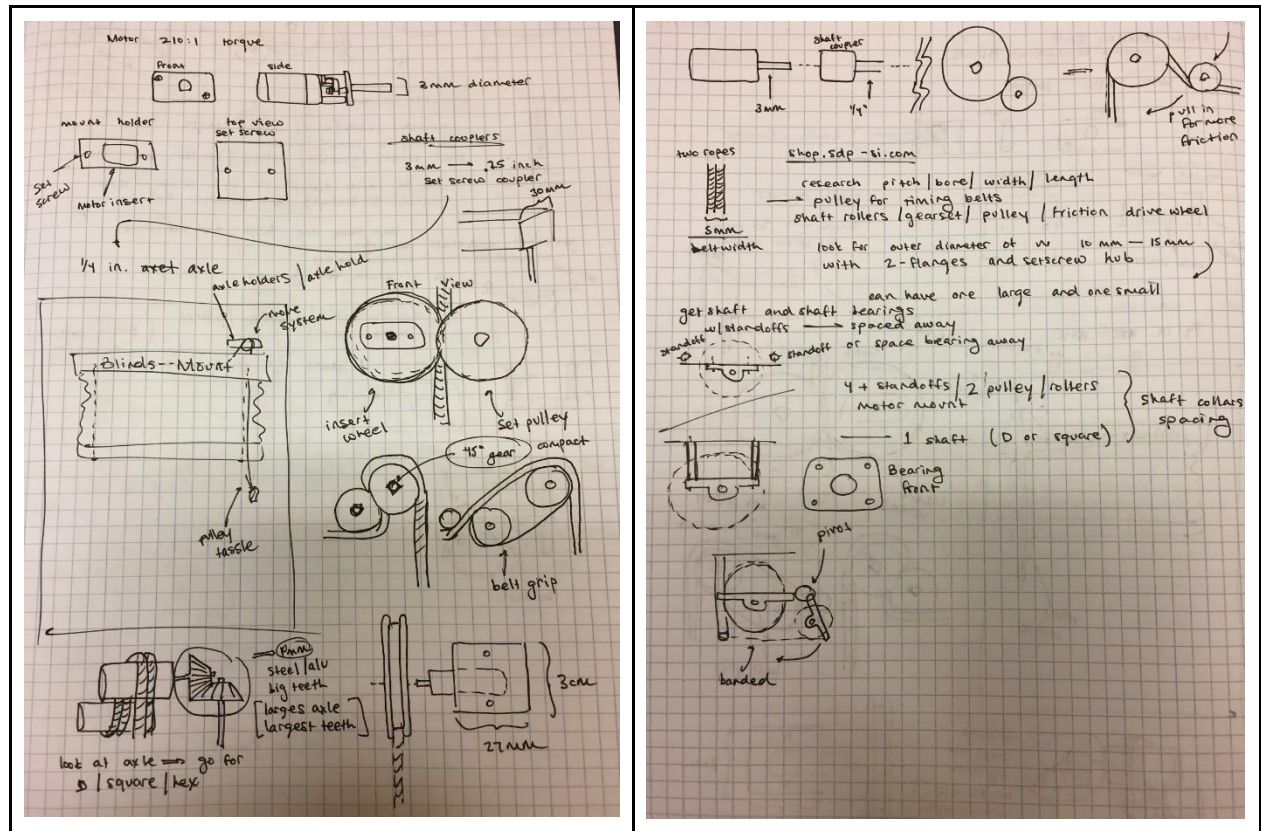 Motor 210:1 torque
front
side
3mm diameter
mount holder
top view
set screw
set screw
motor insert
shaft couplers
3mm → .25 inch
set screw coupler
30mm
1/4 in. axle
axle holders / axle hold
move system
Blinds--Mount
pulley tassle
Front View
insert wheel
set pulley
45° gear
compact
belt grip
steel/alu
big teeth
[larges axle
largest teeth]
look at axle ⟹ go for
D / square / hex
3cm
27mm
shaft coupler
3mm
1/4"
pull in
for more
friction
two ropes
5mm
belt width
shop.sdp-si.com
research pitch / bore / width / length
→ pulley for timing belts
shaft rollers / gearset / pulley / friction drive wheel
look for outer diameter of ~ 10 mm — 15 mm
with 2-flanges and setscrew hub
can have one large and one small
get shaft and shaft bearings
w/standoffs → spaced away
or space bearing away
standoff
standoff
4 + standoffs / 2 pulley / rollers
motor mount
1 shaft (D or square)
shaft collars
spacing
Bearing
front
pivot
banded